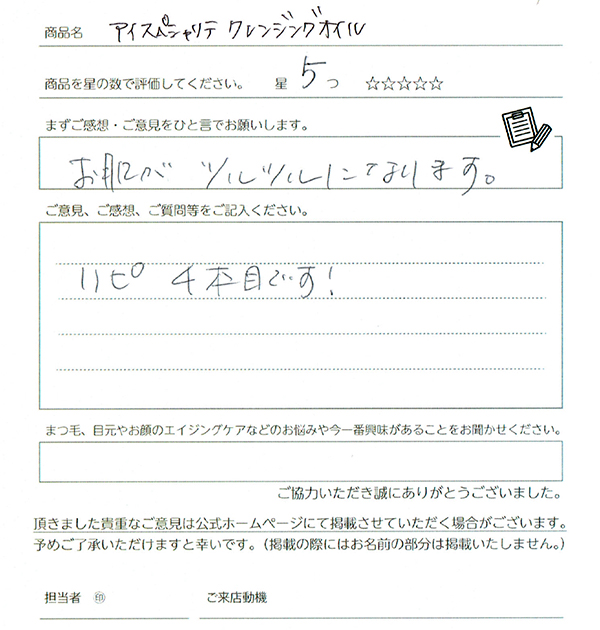 商品名 アイスペシャリテ クレンジングオイル
商品を星の数で評価してください。 星 5つ ☆☆☆☆☆
まずご感想・ご意見をひと言でお願いします。
お肌がツルツルになります。
ご意見、ご感想、ご質問等をご記入ください。
リピ 4本目です!
まつ毛、目元やお顔のエイジングケアなどのお悩みや今一番興味があることをお聞かせください。
ご協力いただき誠にありがとうございました。
頂きました貴重なご意見は公式ホームページにて掲載させていただく場合がございます。
予めご了承いただけますと幸いです。(掲載の際にはお名前の部分は掲載いたしません。)
担当者 ㊞ ご来店動機